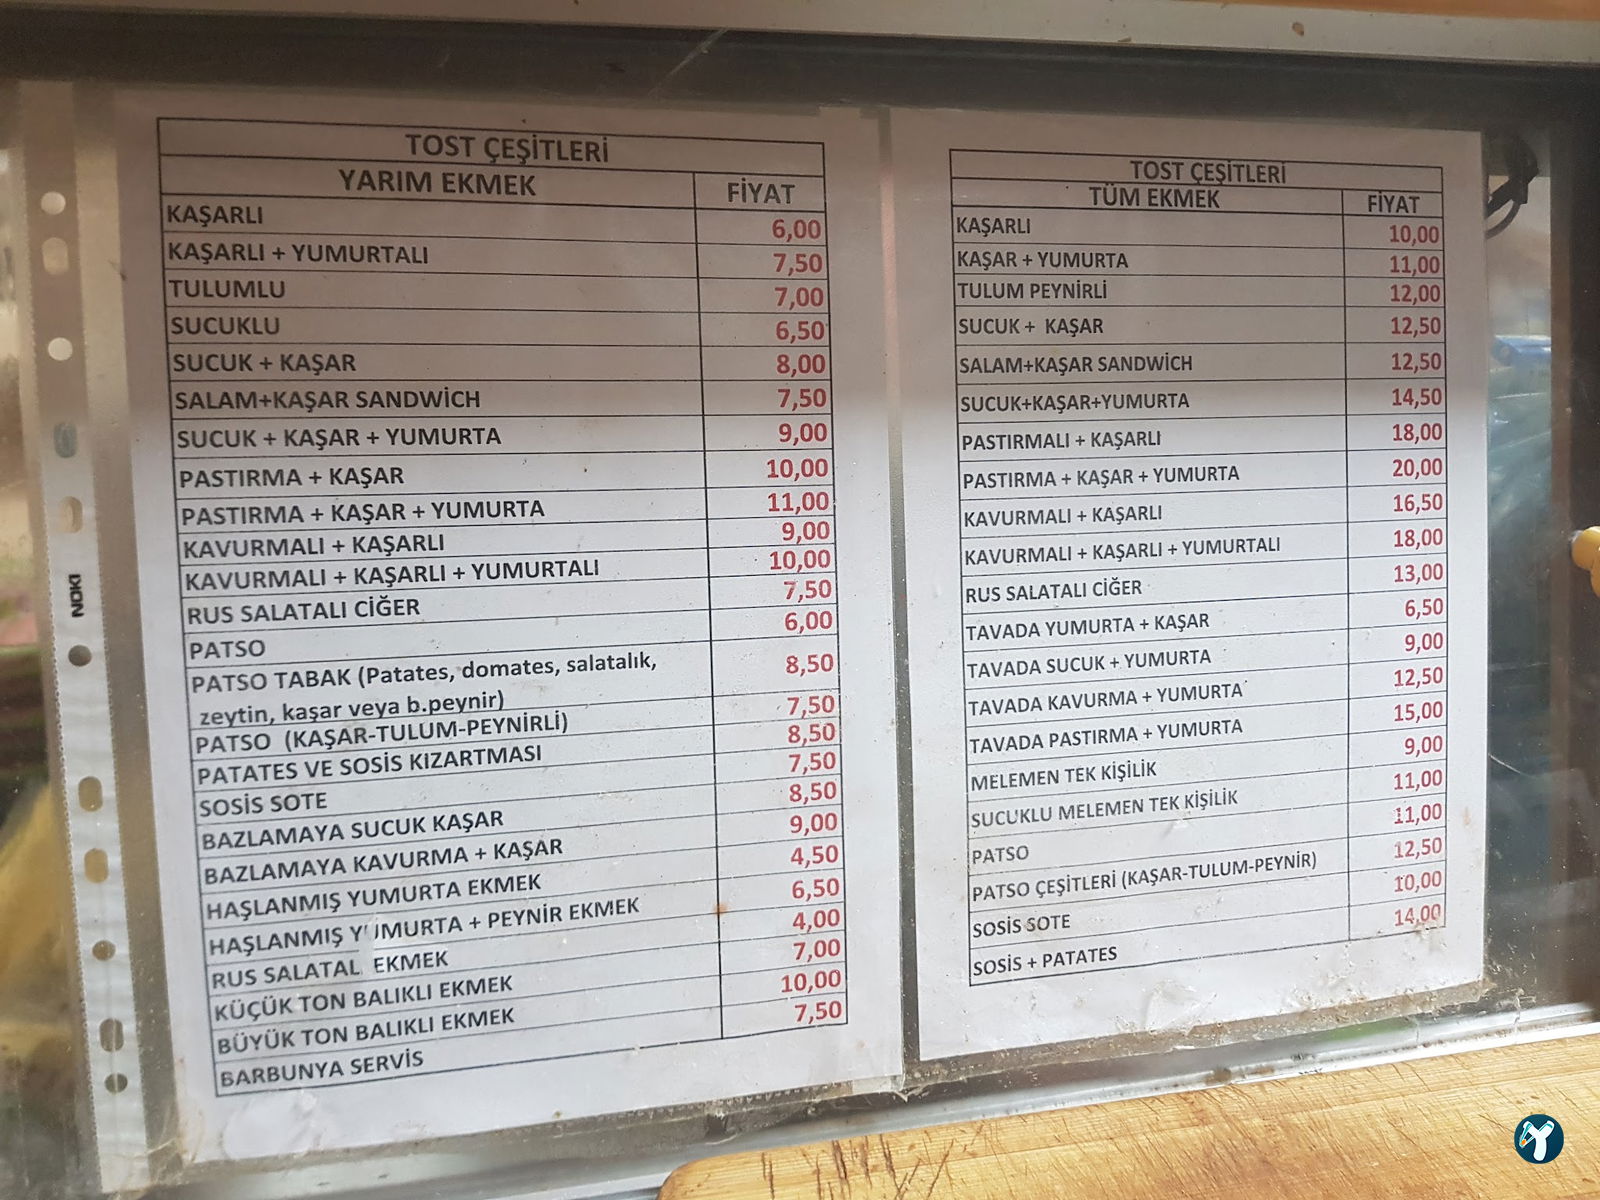 TOST ÇEŞİTLERİ
YARIM EKMEK FİYAT
KAŞARLI 6,00
KAŞARLI + YUMURTALI 7,50
TULUMLU 7,00
SUCUKLU 6,50
SUCUK + KAŞAR 8,00
SALAM+KAŞAR SANDWİCH 7,50
SUCUK + KAŞAR + YUMURTA 9,00
PASTIRMA + KAŞAR 10,00
PASTIRMA + KAŞAR + YUMURTA 11,00
KAVURMALI + KAŞARLI 9,00
KAVURMALI + KAŞARLI + YUMURTALI 10,00
RUS SALATALI CİĞER 7,50
PATSO 6,00
PATSO TABAK (Patates, domates, salatalık, 8,50
zeytin, kaşar veya b.peynir)
PATSO (KAŞAR-TULUM-PEYNİRLİ) 7,50
PATATES VE SOSİS KIZARTMASI 8,50
SOSİS SOTE 7,50
BAZLAMAYA SUCUK KAŞAR 8,50
BAZLAMAYA KAVURMA + KAŞAR 9,00
HAŞLANMIŞ YUMURTA EKMEK 4,50
HAŞLANMIŞ YUMURTA + PEYNİR EKMEK 6,50
RUS SALATAL EKMEK 4,00
KÜÇÜK TON BALIKLI EKMEK 7,00
BÜYÜK TON BALIKLI EKMEK 10,00
BARBUNYA SERVİS 7,50
TOST ÇEŞİTLERİ
TÜM EKMEK FİYAT
KAŞARLI 10,00
KAŞAR + YUMURTA 11,00
TULUM PEYNİRLİ 12,00
SUCUK + KAŞAR 12,50
SALAM+KAŞAR SANDWİCH 12,50
SUCUK+KAŞAR+YUMURTA 14,50
PASTIRMALI + KAŞARLI 18,00
PASTIRMA + KAŞAR + YUMURTA 20,00
KAVURMALI + KAŞARLI 16,50
KAVURMALI + KAŞARLI + YUMURTALI 18,00
RUS SALATALI CİĞER 13,00
TAVADA YUMURTA + KAŞAR 6,50
TAVADA SUCUK + YUMURTA 9,00
TAVADA KAVURMA + YUMURTA 12,50
TAVADA PASTIRMA + YUMURTA 15,00
MELEMEN TEK KİŞİLİK 9,00
SUCUKLU MELEMEN TEK KİŞİLİK 11,00
PATSO 11,00
PATSO ÇEŞİTLERİ (KAŞAR-TULUM-PEYNİR) 12,50
SOSİS SOTE 10,00
SOSİS + PATATES 14,00
NOKI
Y